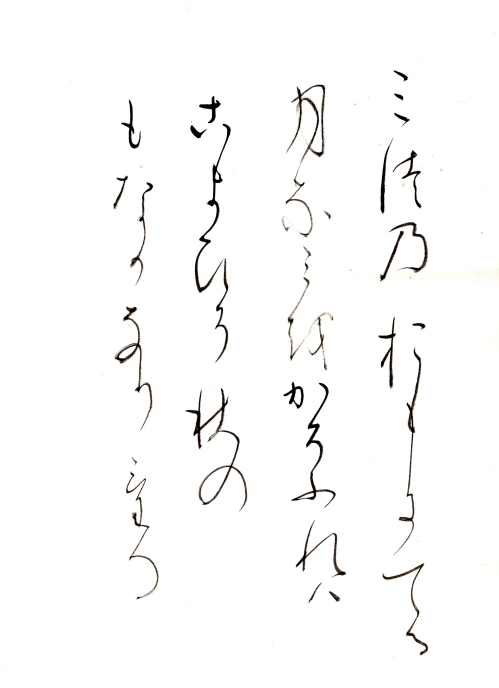 三徒乃おもにてる
月なみをかそふれハ
こよひそ秋の
もなかなりける